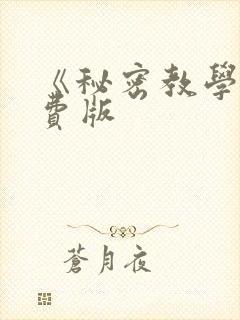 《秘密教學
費版
蒼月夜